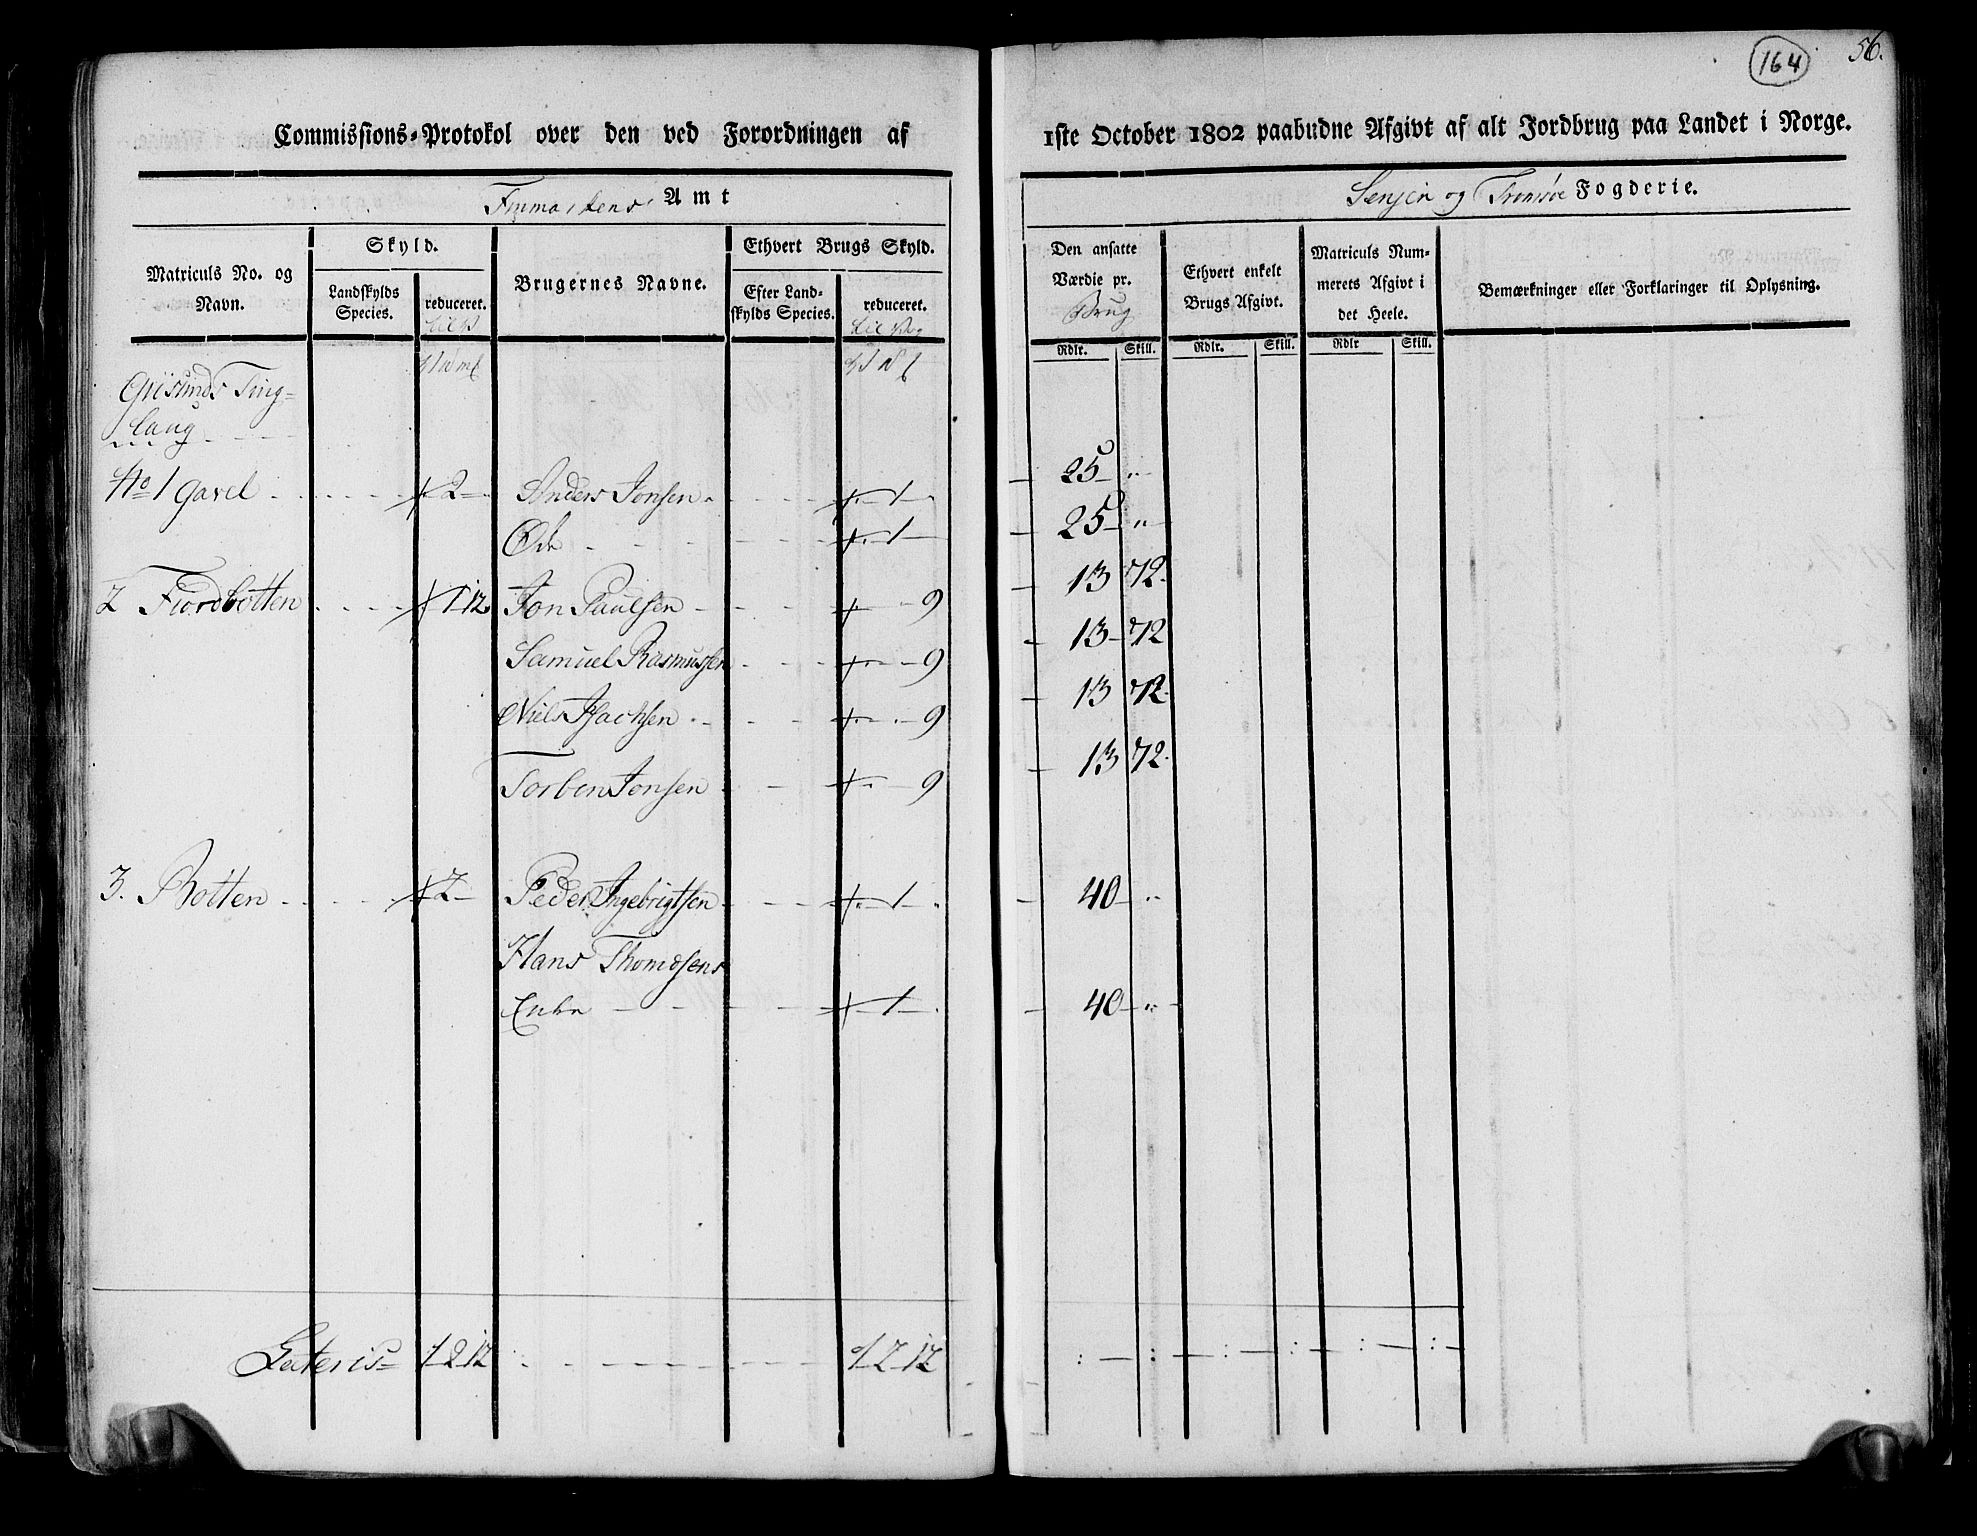 164 56.
Commissions-Protokol over den ved Forordningen af 1ste October 1802 paabudne Afgivt af alt Jordbrug paa Landet i Norge.
Finmarkens Amt
Senjen og Tromsøe Fogderie.
Matriculs No. og Navn.
Skyld.
Landskylds Species.
reduceret.
Brugernes Navne.
Ethvert Brugs Skyld.
Efter Landskylds Species.
reduceret.
Den ansatte Værdie pr. Brug
Ethvert enkelt Brugs Afgivt.
Matriculs Nummerets Afgivt i det Heele.
Bemærkninger eller Forklaringer til Oplysning.
Rdlr. Skill. Rdlr. Skill. Rdlr Skill.
Gvisunds Ting=
laug
No 1 Gavel 2 Anders Jonsen 1 25 "
Øde 1 25 "
2 Fiordbotten 1 12 Jon Paulsen 9 13 72
Samuel Rasmussen 9 13 72
Niels Isachsen 9 13 72
Torben Jonsen 9 13 72
3. Botten 2 Peder Ingebrigtsen 1 40 "
Hans Thomesens
Enke 1 40 "
Lateris 1 2 12 1 2 12